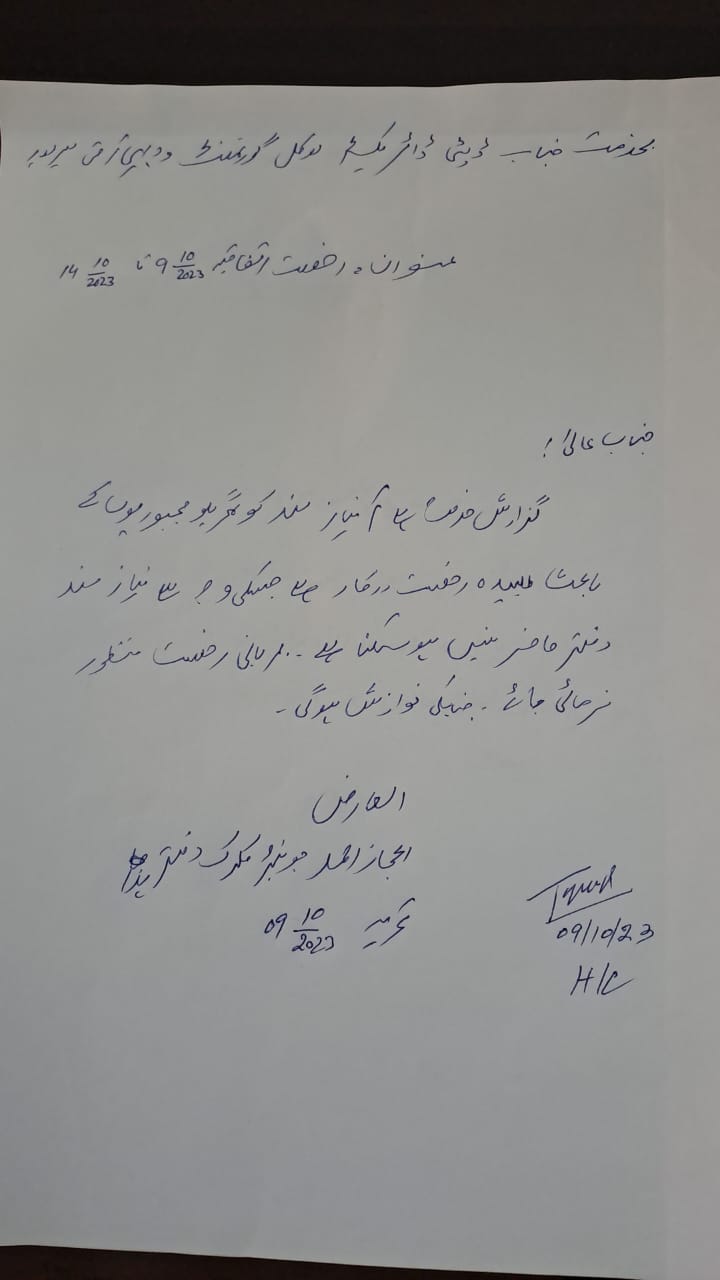 بخدمت جناب ڈپٹی ڈائریکٹر لوکل گورنمنٹ و دیہی ترقی میرپور
عنوان: رخصت اتفاقیہ 9 10/2023 تا 14 10/2023
جناب عالی!
گزارش خدمت ہے کہ نیاز مند کو گھریلو مجبوریوں کے
باعث رخصت درکار ہے جسکی وجہ سے نیاز مند
دفتر حاضر نہیں ہو سکتا ہے۔ مہربانی رخصت منظور
فرمائی جائے۔ جنکی نوازش ہوگی۔
العارض
اعجاز احمد جونیئر کلرک دفتر ہذا
تحریر 09 10/2023
09/10/23
H/C